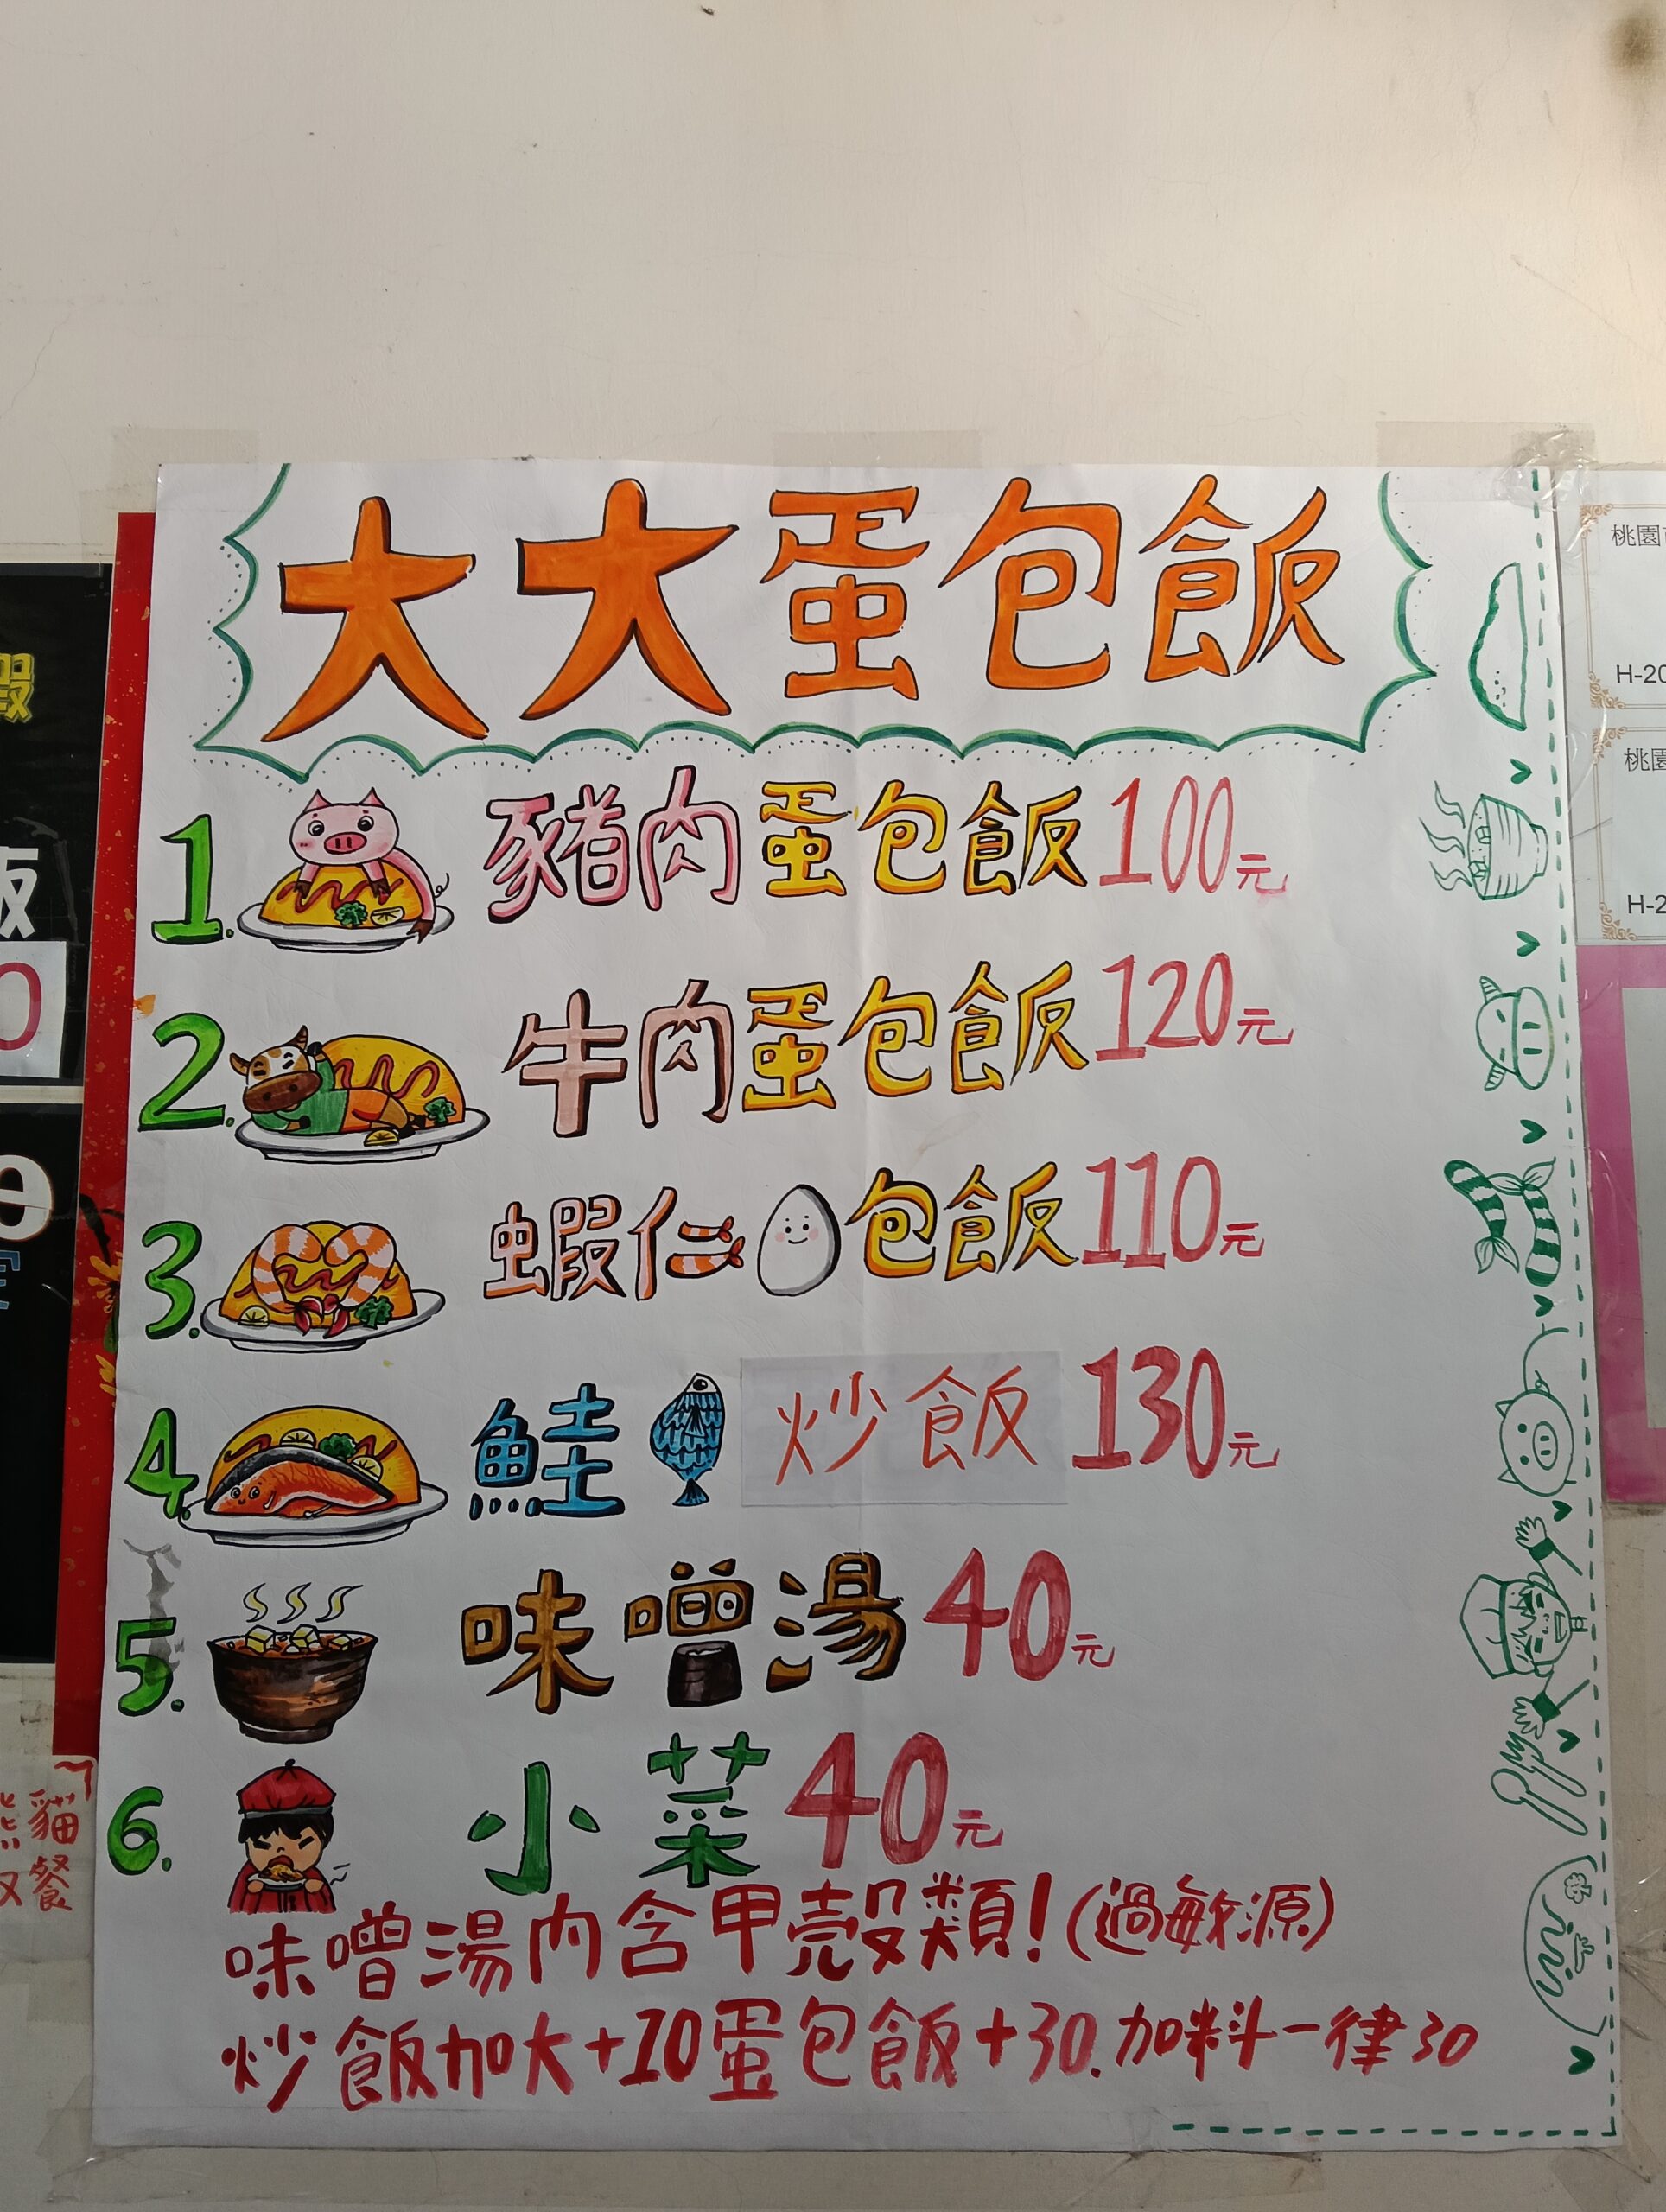 大大蛋包飯
1. 豬肉蛋包飯100元
2. 牛肉蛋包飯120元
3. 蝦仁包飯110元
4. 鮭炒飯130元
5. 味噌湯40元
6. 小菜40元
味噌湯內含甲殼類!(過敏源)
炒飯加大+10蛋包飯+30.加料一律30
桃園
H-20
桃園
H-2
蝦
飯
0
e
貓
餐